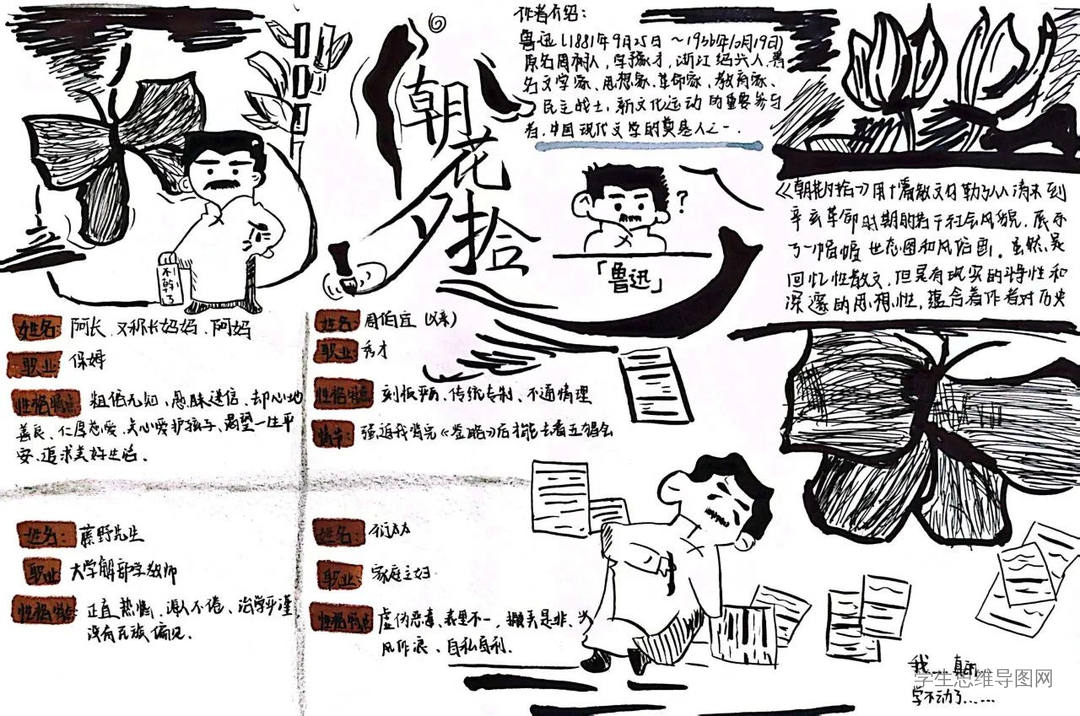 朝花夕拾
作者介绍：
鲁迅（1881年9月25日～1936年10月19日）
原名周树人，字豫才，浙江绍兴人，著
名文学家、思想家、革命家、教育家、
民主战士，新文化运动的重要参与
者，中国现代文学的奠基人之一．
？
「鲁迅」
不干了
《朝花夕拾》用十篇散文勾勒了从清末到
辛亥革命时期的若干社会风貌，展示
了一幅幅世态图和风俗画。虽然是
回忆性散文，但是有现实的特性和
深邃的思想性，蕴含着作者对历史
姓名：阿长、又称长妈妈、阿妈
职业 保姆
性格特点 粗俗无知，愚昧迷信、却心地
善良、仁厚慈爱、关心爱护孩子、渴望一生平
安、追求美好生活．
姓名：周伯宜
职业 秀才
性格特点 刻板严厉、传统专制、不通情理
情节：强迫我背完《鉴略》后才能去看五猖会
姓名：藤野先生
职业 大学解剖学教师
性格特点 正直、热情、诲人不倦、治学严谨，
没有民族偏见．
姓名：衍太太
职业：家庭主妇
性格特点 虚伪恶毒、表里不一，搬弄是非、兴
风作浪、自私自利．
我……真的
写不动了……
学生思维导图网